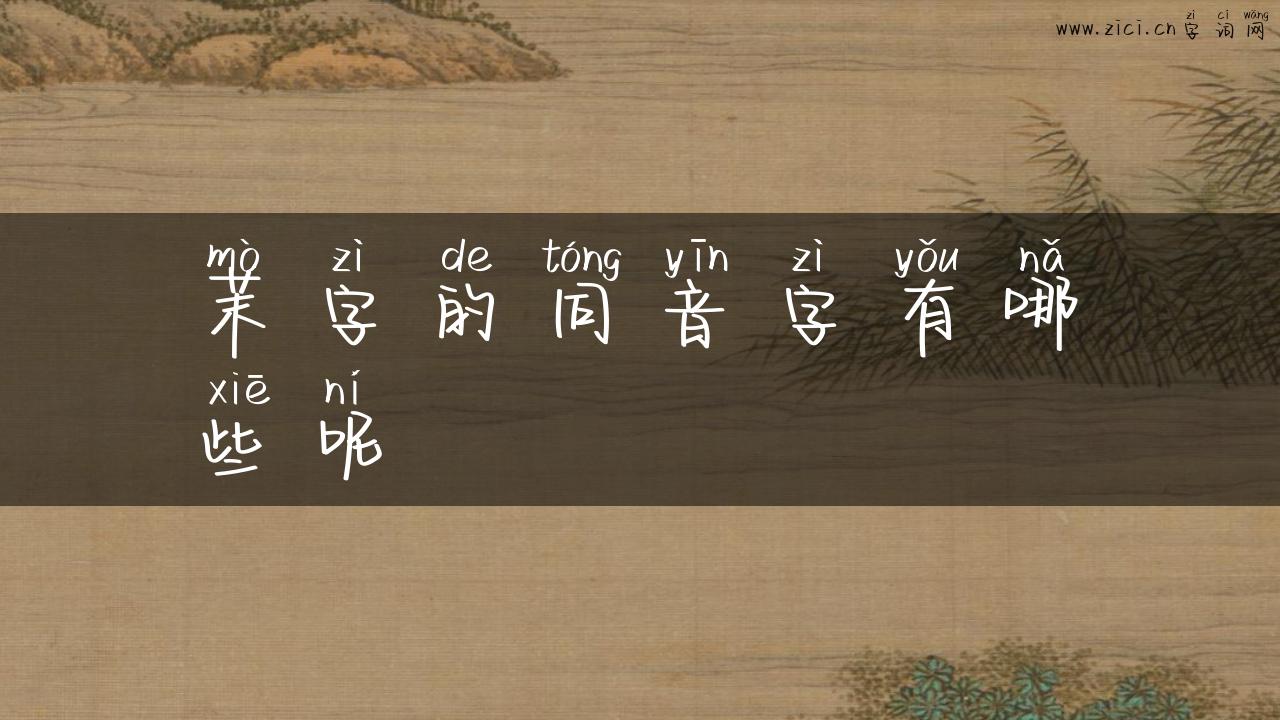 www.zici.cn字词网
zì cí wǎng
mò zì de tóng yīn zì yǒu nǎ
茉字的同音字有哪
xiē ní
些呢